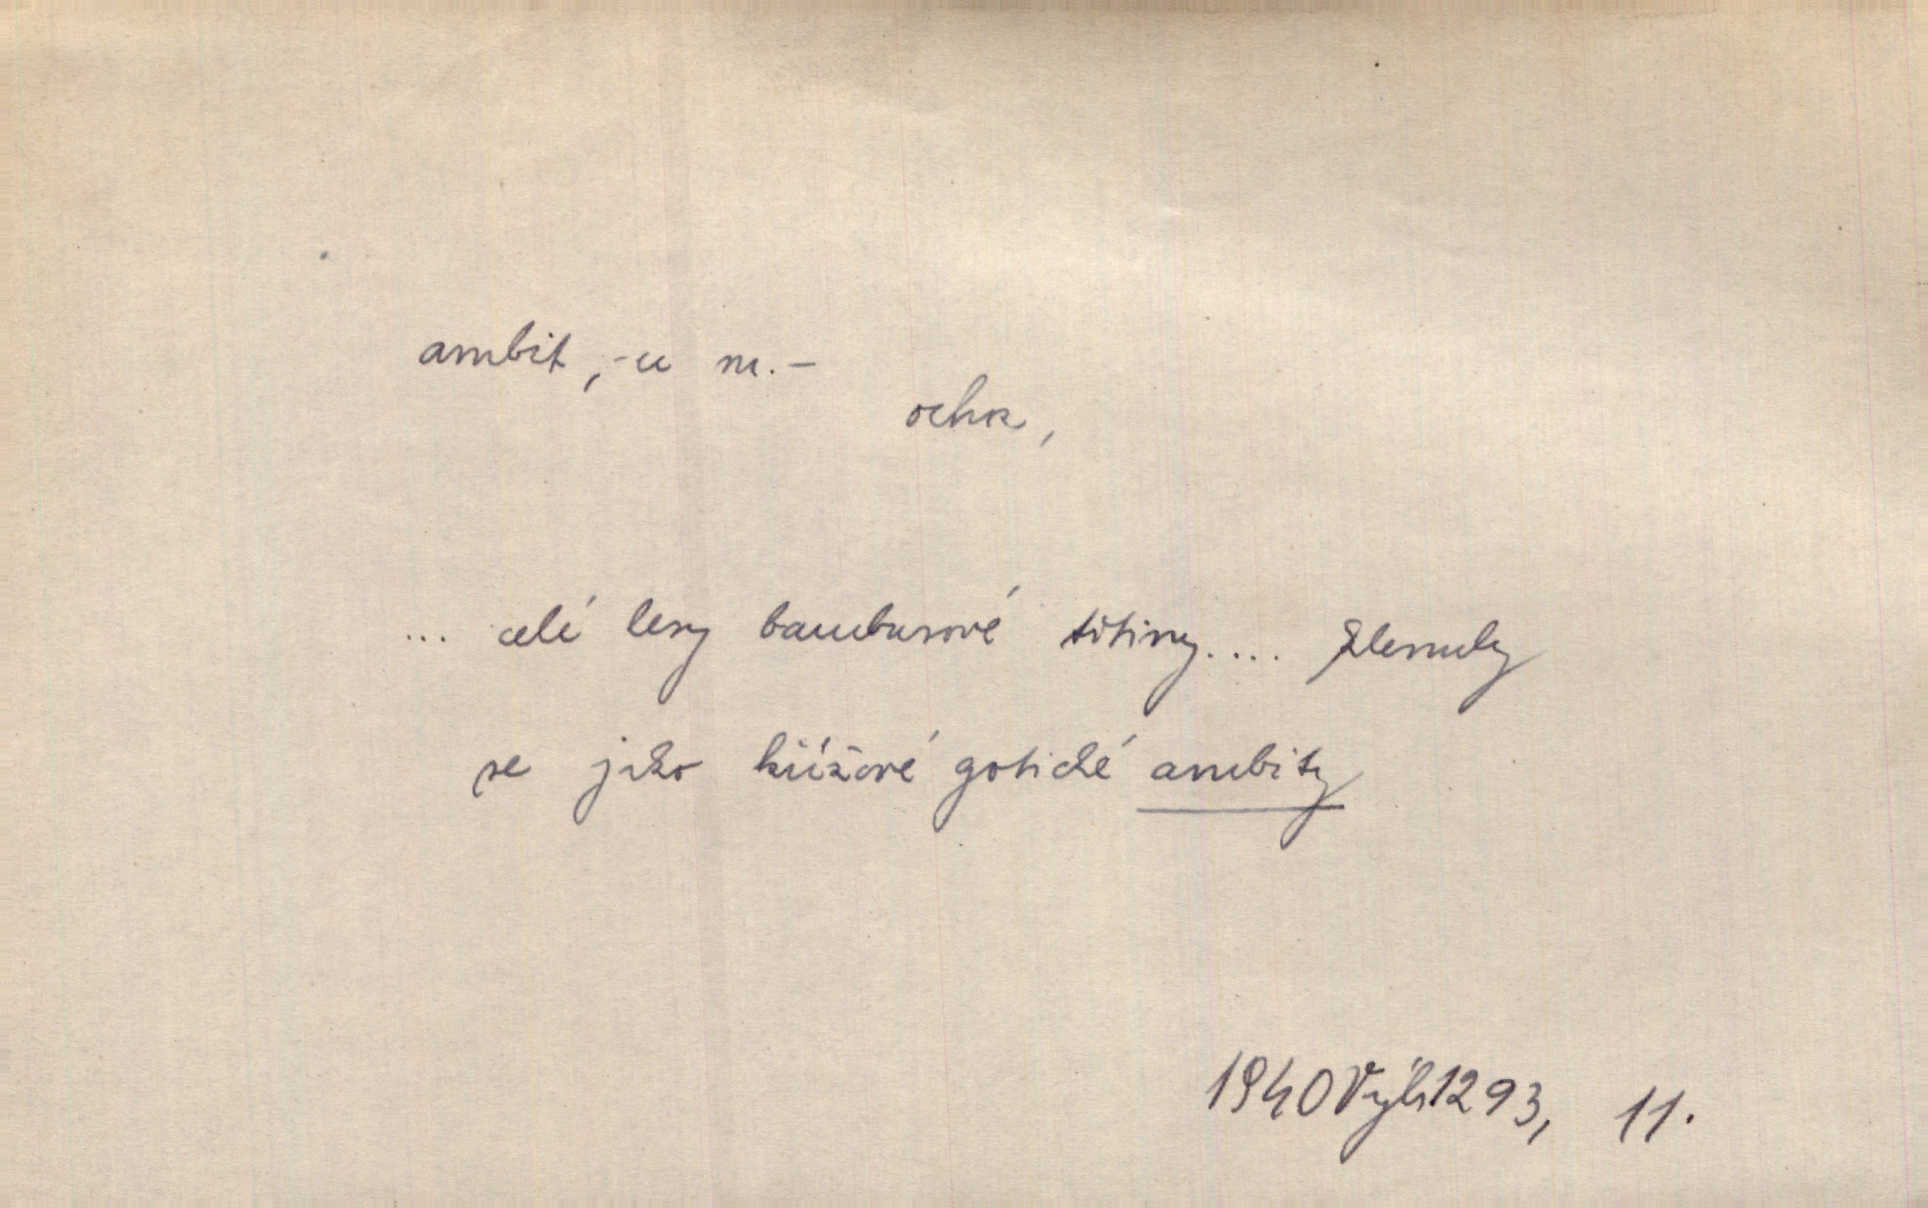 ambit, -u m. -
ochoz,
... celé lesy bambusové třtiny.... klenuly
se jako křížové gotické ambity
1940 Výb1293, 11.